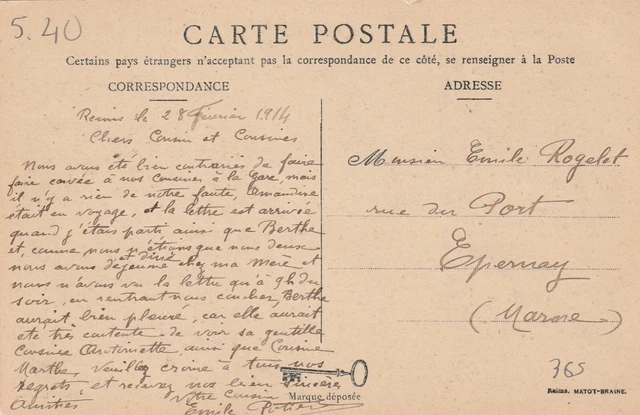 5.40
CARTE POSTALE
Certains pays étrangers n'acceptant pas la correspondance de ce côté, se renseigner à la Poste
CORRESPONDANCE
Reims le 28 février 1914
Chers Cousin et Cousines
Nous avons été bien contrariés de faire
faire corvée à nos cousines à la Gare, mais
il n'y a rien de notre faute, Amandine
était en voyage, et la lettre est arrivée
quand j'étais parti ainsi que Berthe
et, comme nous n'étions que nous deux
nous avons déjeuné et diné chez ma Mère et
nous n'avons vu la lettre qu'à 9h du
soir, en rentrant nous coucher, Berthe
aurait bien pleuré, car elle aurait
été très contente de voir sa gentille
cousine Antoinette, ainsi que Cousine
Marthe, Veuillez croire à tous nos
regrets, et recevez nos bien sincères
Amitiés
Votre Cousin
Emile Potier
ADRESSE
Monsieur Emile Rogelet
rue du Port
Epernay
(Marne)
365
Marque déposée
Reims. MATOT-BRAINE.